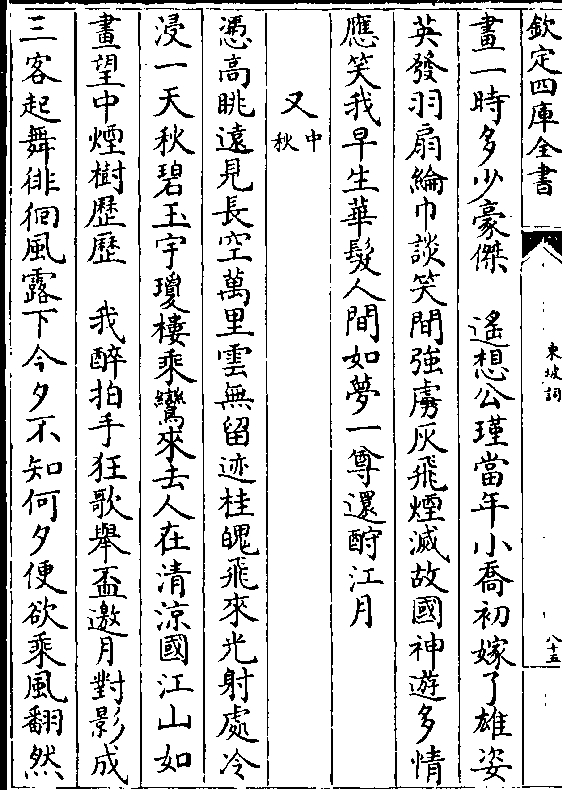 欽定四庫全書
東坡詞
八十五
畫一時多少豪傑　遥想公瑾當年小喬初嫁了雄姿
英發羽扇綸巾談笑間強虜灰飛煙滅故國神遊多情
應笑我早生華髮人間如夢一尊還酹江月
又中秋
憑高眺遠見長空萬里雲無留迹桂魄飛來光射處冷
浸一天秋碧玉宇瓊樓乘鸞來去人在清涼國江山如
畫望中煙樹歷歷　我醉拍手狂歌舉盃邀月對影成
三客起舞徘徊風露下今夕不知何夕便欲乘風翻然